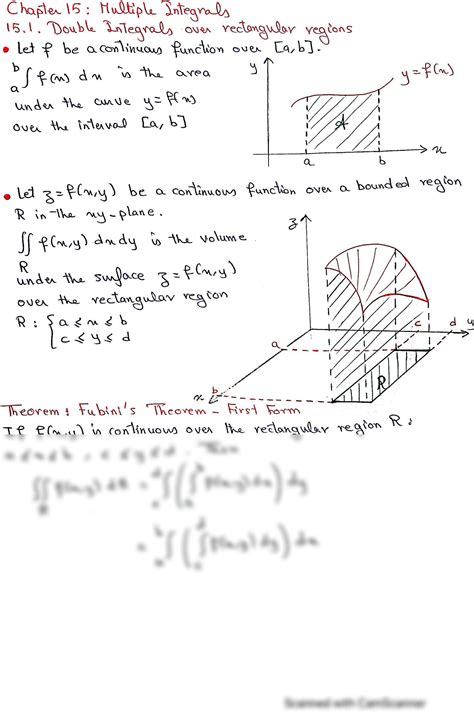 Chapter 15: Multiple Integrals
15.1. Double Integrals over rectangular regions
• Let f be a continuous function over [a,b].
b
∫ f(x) dx is the area
a
under the curve y=f(x)
over the interval [a,b]
y
y=f(x)
A
a
b
x
• Let z=f(x,y) be a continuous function over a bounded region
R in the xy-plane.
∬ f(x,y) dxdy is the volume
R
under the surface z=f(x,y)
over the rectangular region
R : { a ≤ x ≤ b
c ≤ y ≤ d
z
a
c
d
y
b
x
R
Theorem: Fubini's Theorem - First Form
If f(x,y) is continuous over the rectangular region R:
Scanned with CamScanner